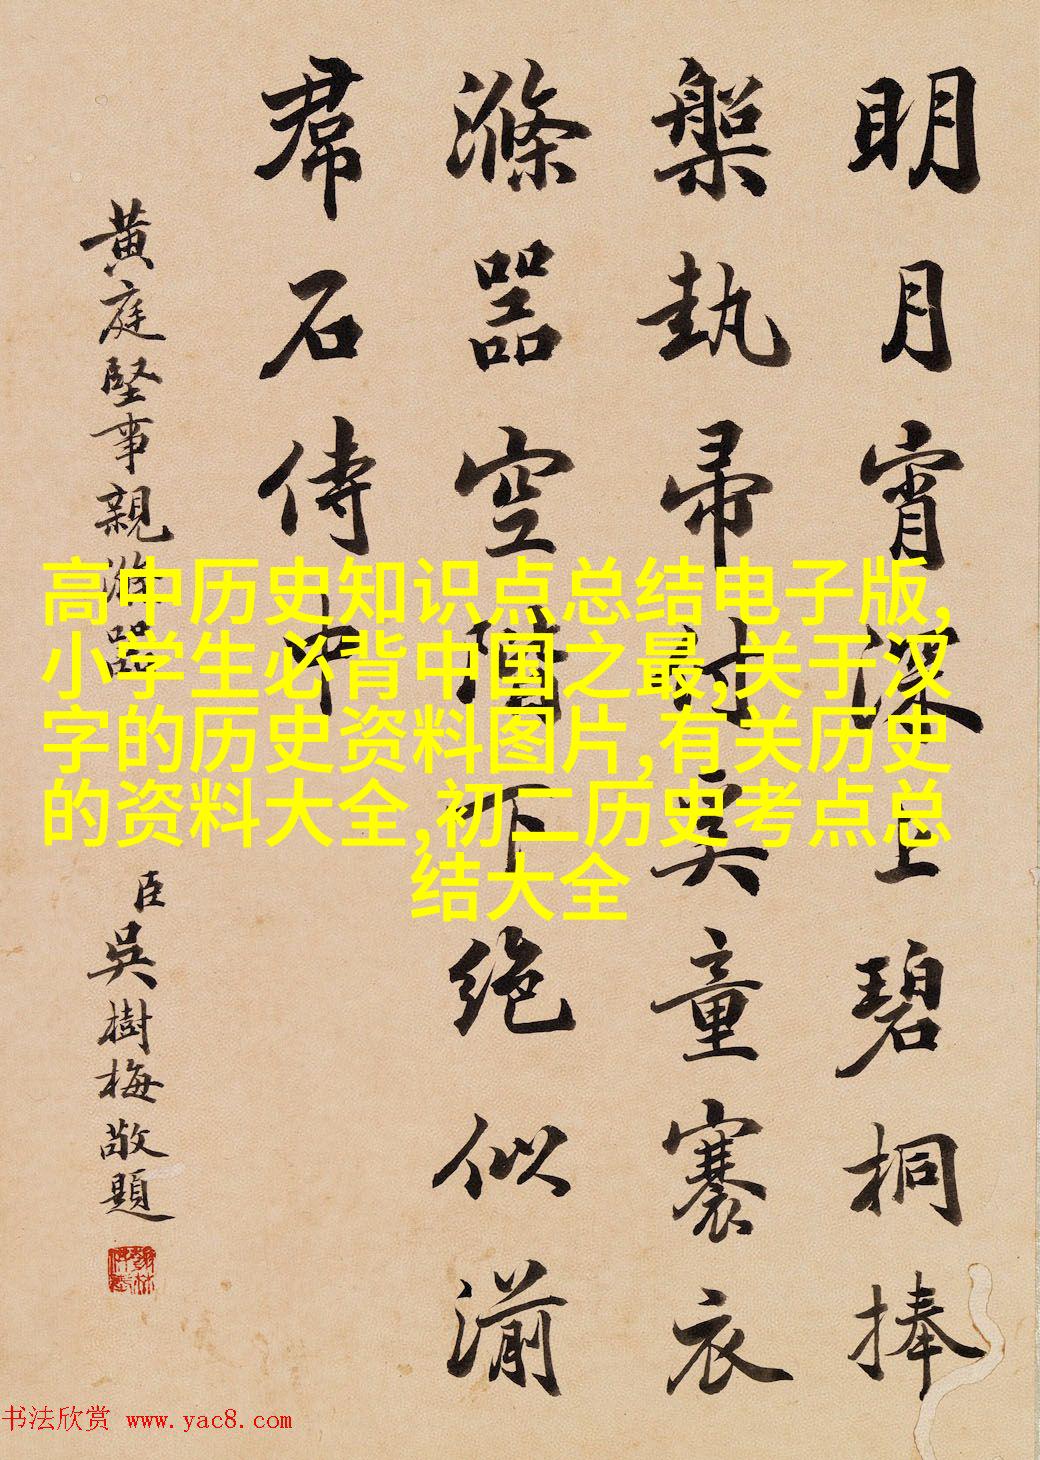 明月宵深上碧桐捧
槃執帚付奚童褰衣
滌器空階下絶似湔
帬石侍中
黃庭堅事親滌器
臣吳樹梅敬題
高中历史知识点总结电子版,
小学生必背中国之最,关于汉
字的历史资料图片,有关历史
的资料大全,初二历史考点总
结大全
书法欣赏 www.yac8.com